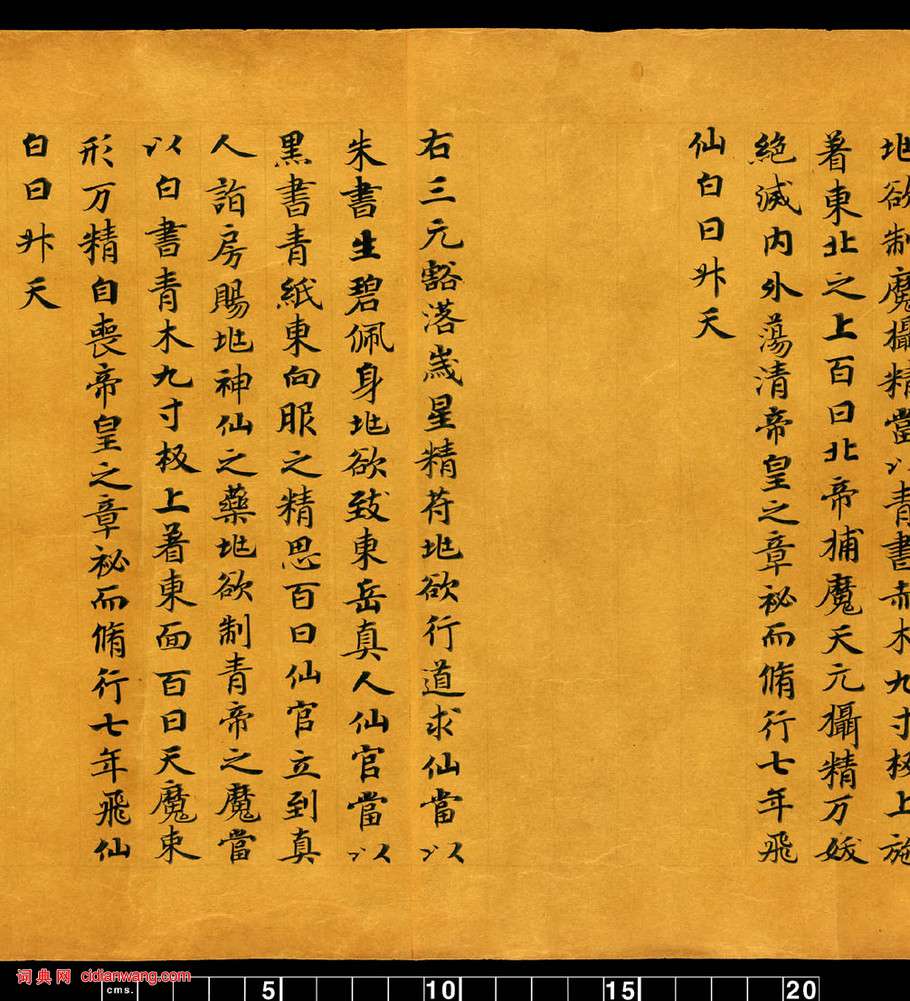 兆欲制魔攝精當以青書赤木九寸板上施
著東北之上百日北帝捕魔天元攝精万妖
絕滅內外蕩清帝皇之章祕而脩行七年飛
仙白日升天
右三元豁落歲星精符兆欲行道求仙當以
朱書生碧佩身兆欲致東岳真人仙官當以
黑書青紙東向服之精思百日仙官立到真
人詣房賜兆神仙之藥兆欲制青帝之魔當
以白書青木九寸板上著東面百日天魔束
形万精自喪帝皇之章祕而脩行七年飛仙
白日升天
词典网 cidianwang.com
cms. 5 10 15 20